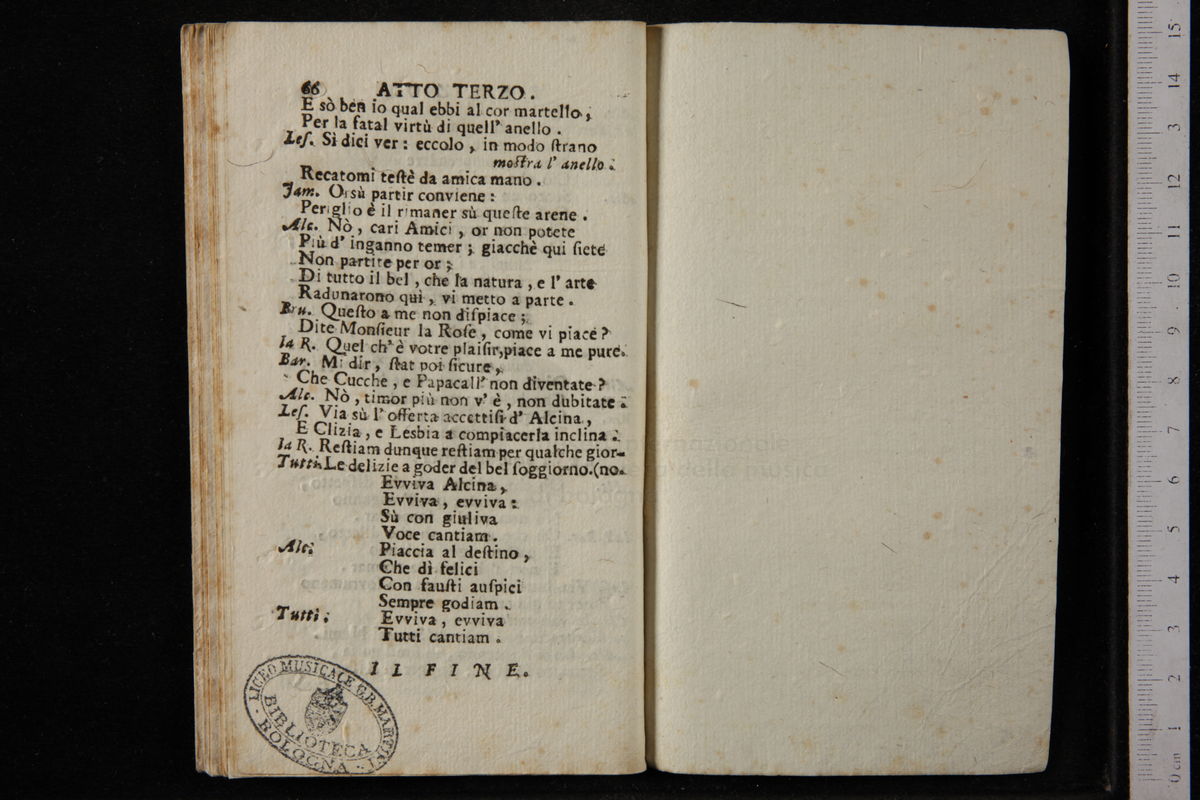 66 ATTO TERZO.
E sò ben io qual ebbi al cor martello,
Per la fatal virtù di quell' anello.
Leſ. Sì dici ver: eccolo, in modo ſtrano
moſtra l' anello.
Recatomi teſtè da amica mano.
Jam. Orsù partir conviene:
Periglio è il rimaner sù queſte arene.
Alc. Nò, cari Amici, or non potete
Più d' inganno temer; giacchè qui ſiete
Non partite per or;
Di tutto il bel, che la natura, e l' arte
Radunarono quì, vi metto a parte.
Bru. Queſto a me non diſpiace;
Dite Monſieur la Roſe, come vi piace?
la R. Quel ch' è votre plaiſir, piace a me pure.
Bar. Mi dir, ſtat poi ſicure,
Che Cucche, e Papacall' non diventate?
Alc. Nò, timor più non v' è, non dubitate.
Leſ. Via sù l' offerta accettiſi d' Alcina,
E Clizia, e Lesbia a compiacerla inclina.
la R. Reſtiam dunque reſtiam per qualche gior-
Tutti. Le delizie a goder del bel ſoggiorno. (no.
Evviva Alcina,
Evviva, evviva:
Sù con giuliva
Voce cantiam.
Alc. Piaccia al deſtino,
Che dì felici
Con fauſti auſpici
Sempre godiam.
Tutti. Evviva, evviva
Tutti cantiam.
IL FINE.
LICEO MUSICALE G.B. MARTINI
BIBLIOTECA
BOLOGNA
della musica
di bologna
0 cm 1 2 3 4 5 6 7 8 9 10 11 12 3 14 15